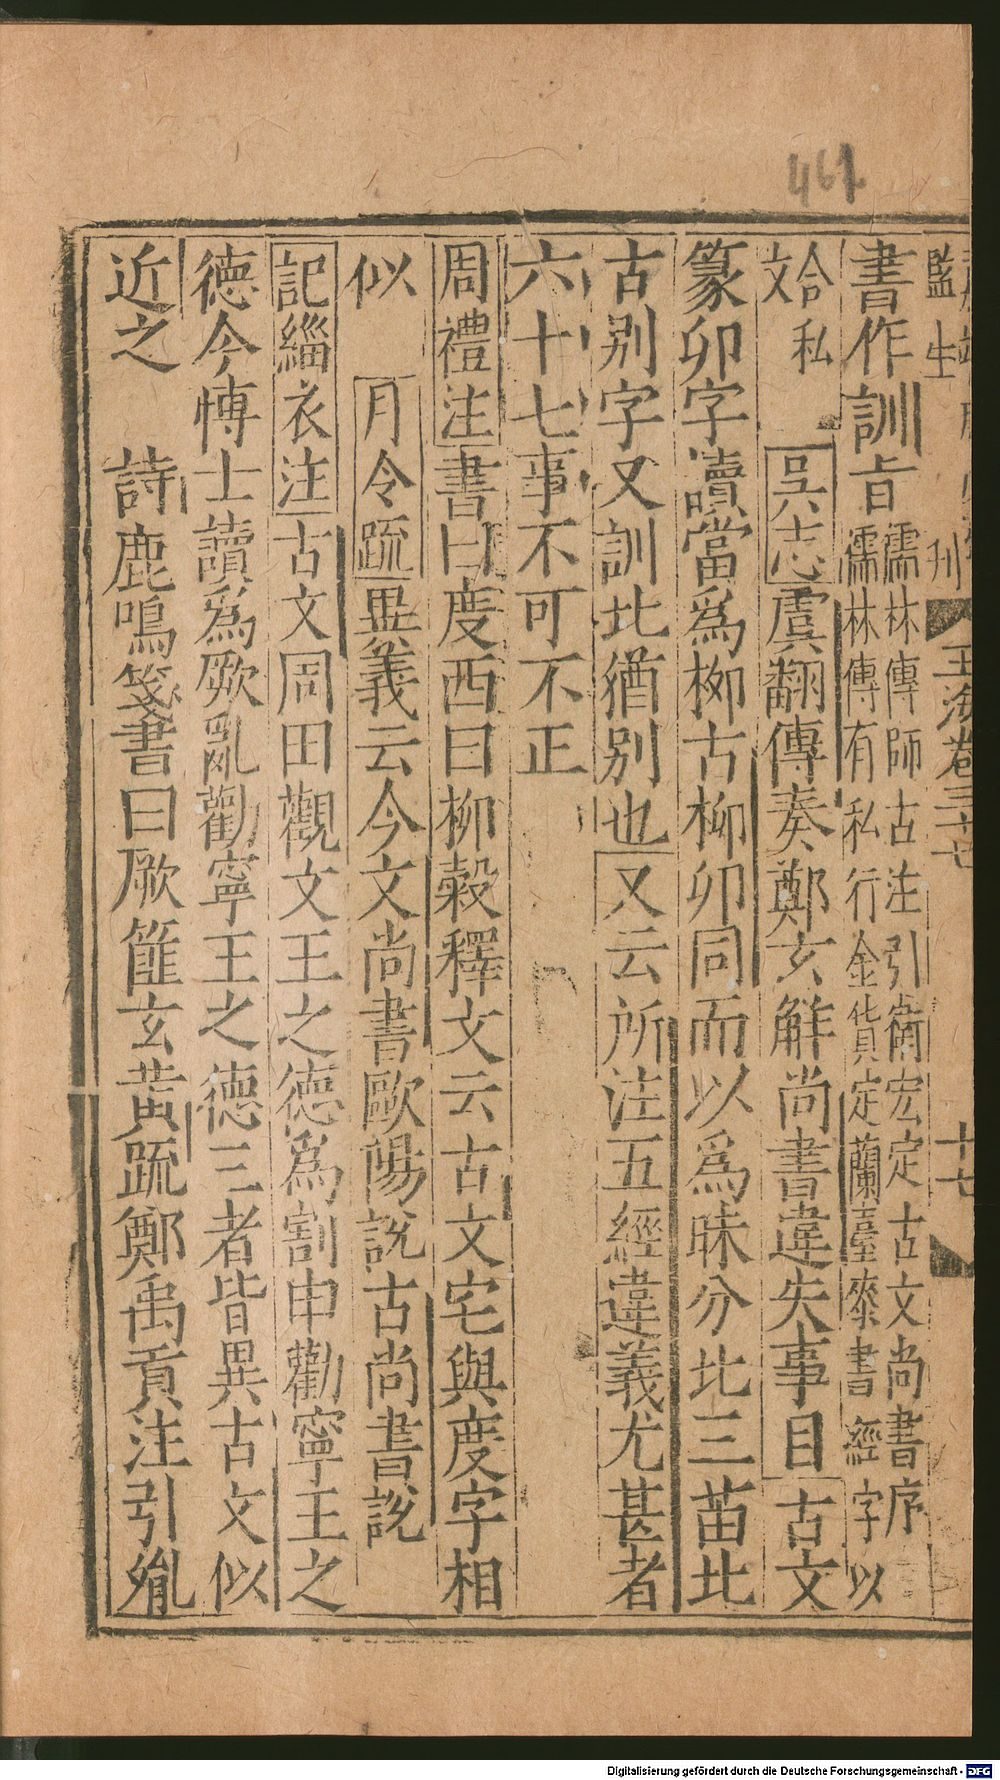 461
監生
刊
玉海卷三十七
十七
書作訓旨儒林傳師古注引衛宏定古文尚書序
儒林傳有私行金貨定蘭臺桼書經字以
合私
文
吳志虞翻傳奏鄭玄解尚書違失事目古文
篆卯字讀當爲桺古桺卯同而以爲昧分北三苗北
古别字又訓北猶别也又云所注五經違義尤甚者
六十七事不可不正
周禮注書曰度西曰柳榖釋文云古文宅與度字相
似 月令疏異義云今文尚書歐陽說古尚書說
記緇衣注古文周田觀文王之德爲割申勸寧王之
德今博士讀爲厥亂勸寧王之德三者皆異古文似
近之 詩鹿鳴箋書曰厥篚玄黄疏鄭禹貢注引胤
Digitalisierung gefördert durch die Deutsche Forschungsgemeinschaft - DFG